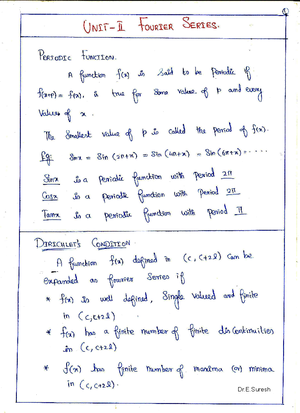 UNIT-II FOURIER SERIES.
PERIODIC FUNCTION.
A function f(x) is said to be Periodic if
f(x+p) = f(x), is true for some value of p and every
values of x.
The smallest value of p is called the period of f(x).
Eg: Sinx = Sin (2π+x) = Sin (4π+x) = Sin (6π+x) - - - - -
Sinx is a periodic function with period 2π
Cosx is a periodic function with period 2π
Tanx is a periodic function with period π
DIRICHLET'S CONDITION
A function f(x) defined in (c, c+2l) can be
expanded as fourier series if
* f(x) is well defined, Single valued and finite
in (c, c+2l)
* f(x) has a finite number of finite discontinuities
in (c, c+2l)
* f(x) has finite number of maxima (or) minima
in (c, c+2l).
Dr.E.Suresh